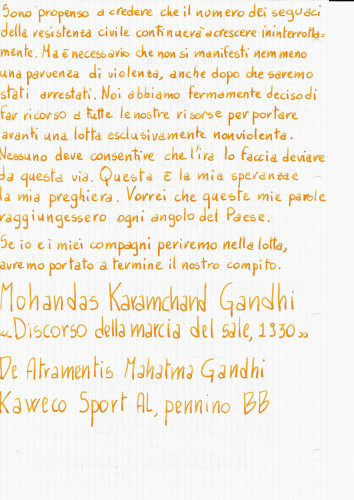 Sono propenso a credere che il numero dei seguaci
della resistenza civile continuerà a crescere ininterrotta=
mente. Ma è necessario che non si manifesti nemmeno
una parvenza di violenza, anche dopo che saremo
stati arrestati. Noi abbiamo fermamente deciso di
far ricorso a tutte le nostre risorse per portare
avanti una lotta esclusivamente nonviolenta.
Nessuno deve consentire che l'ira lo faccia deviare
da questa via. Questa è la mia speranza e
la mia preghiera. Vorrei che queste mie parole
raggiungessero ogni angolo del Paese.
Se io e i miei compagni periremo nella lotta,
avremo portato a termine il nostro compito.
Mohandas Karamchand Gandhi
«Discorso della marcia del sale, 1930»
De Atramentis Mahatma Gandhi
Kaweco Sport AL, pennino BB